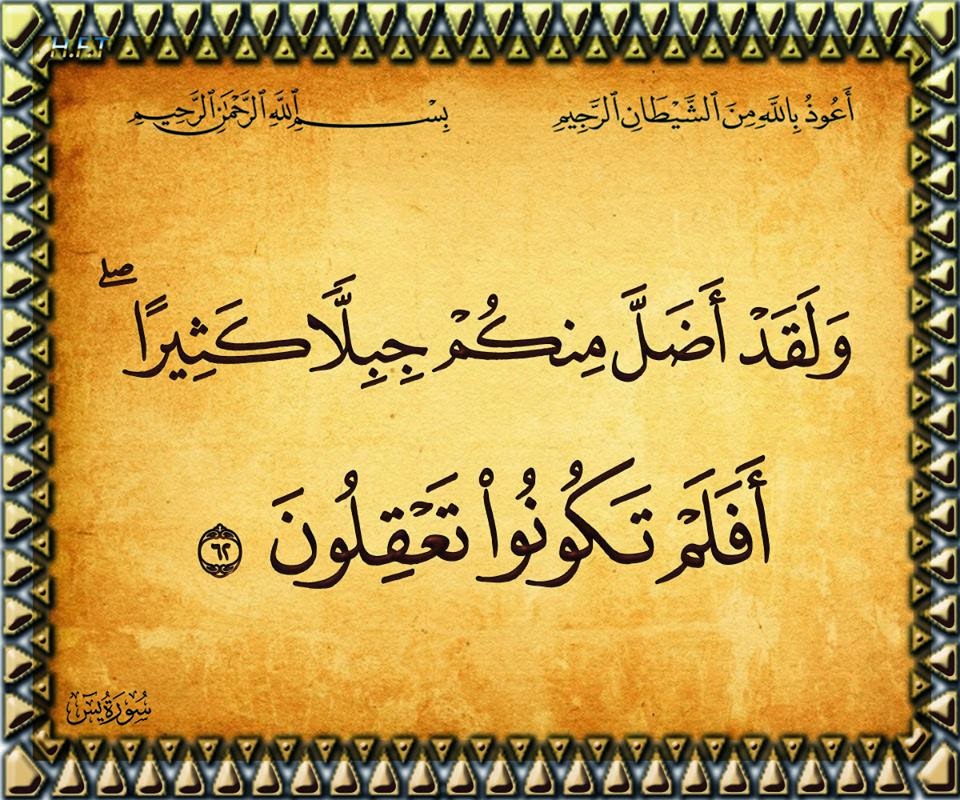 H.F.T
أَعُوذُ بِاللَّهِ مِنَ ٱلشَّيْطَانِ ٱلرَّجِيمِ بِسْمِ ٱللَّهِ ٱلرَّحْمَٰنِ ٱلرَّحِيمِ
وَلَقَدْ أَضَلَّ مِنكُمْ جِبِلًّا كَثِيرًا ۖ
أَفَلَمْ تَكُونُوا۟ تَعْقِلُونَ ٦٢
سُورَةُ يسٓ